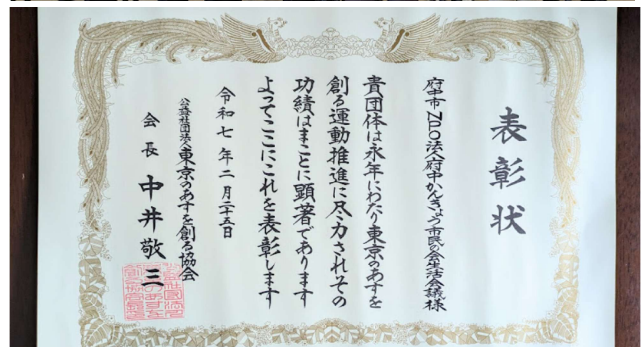 表彰状
府中市 NPO法人府中かんきょう市民の会生活会議様
貴団体は永年にわたり東京のあすを
創る運動推進に尽力されその
功績はまことに顕著であります
よってここにこれを表彰します
令和七年二月二十五日
公益社団法人東京のあすを創る協会
会長 中井敬三